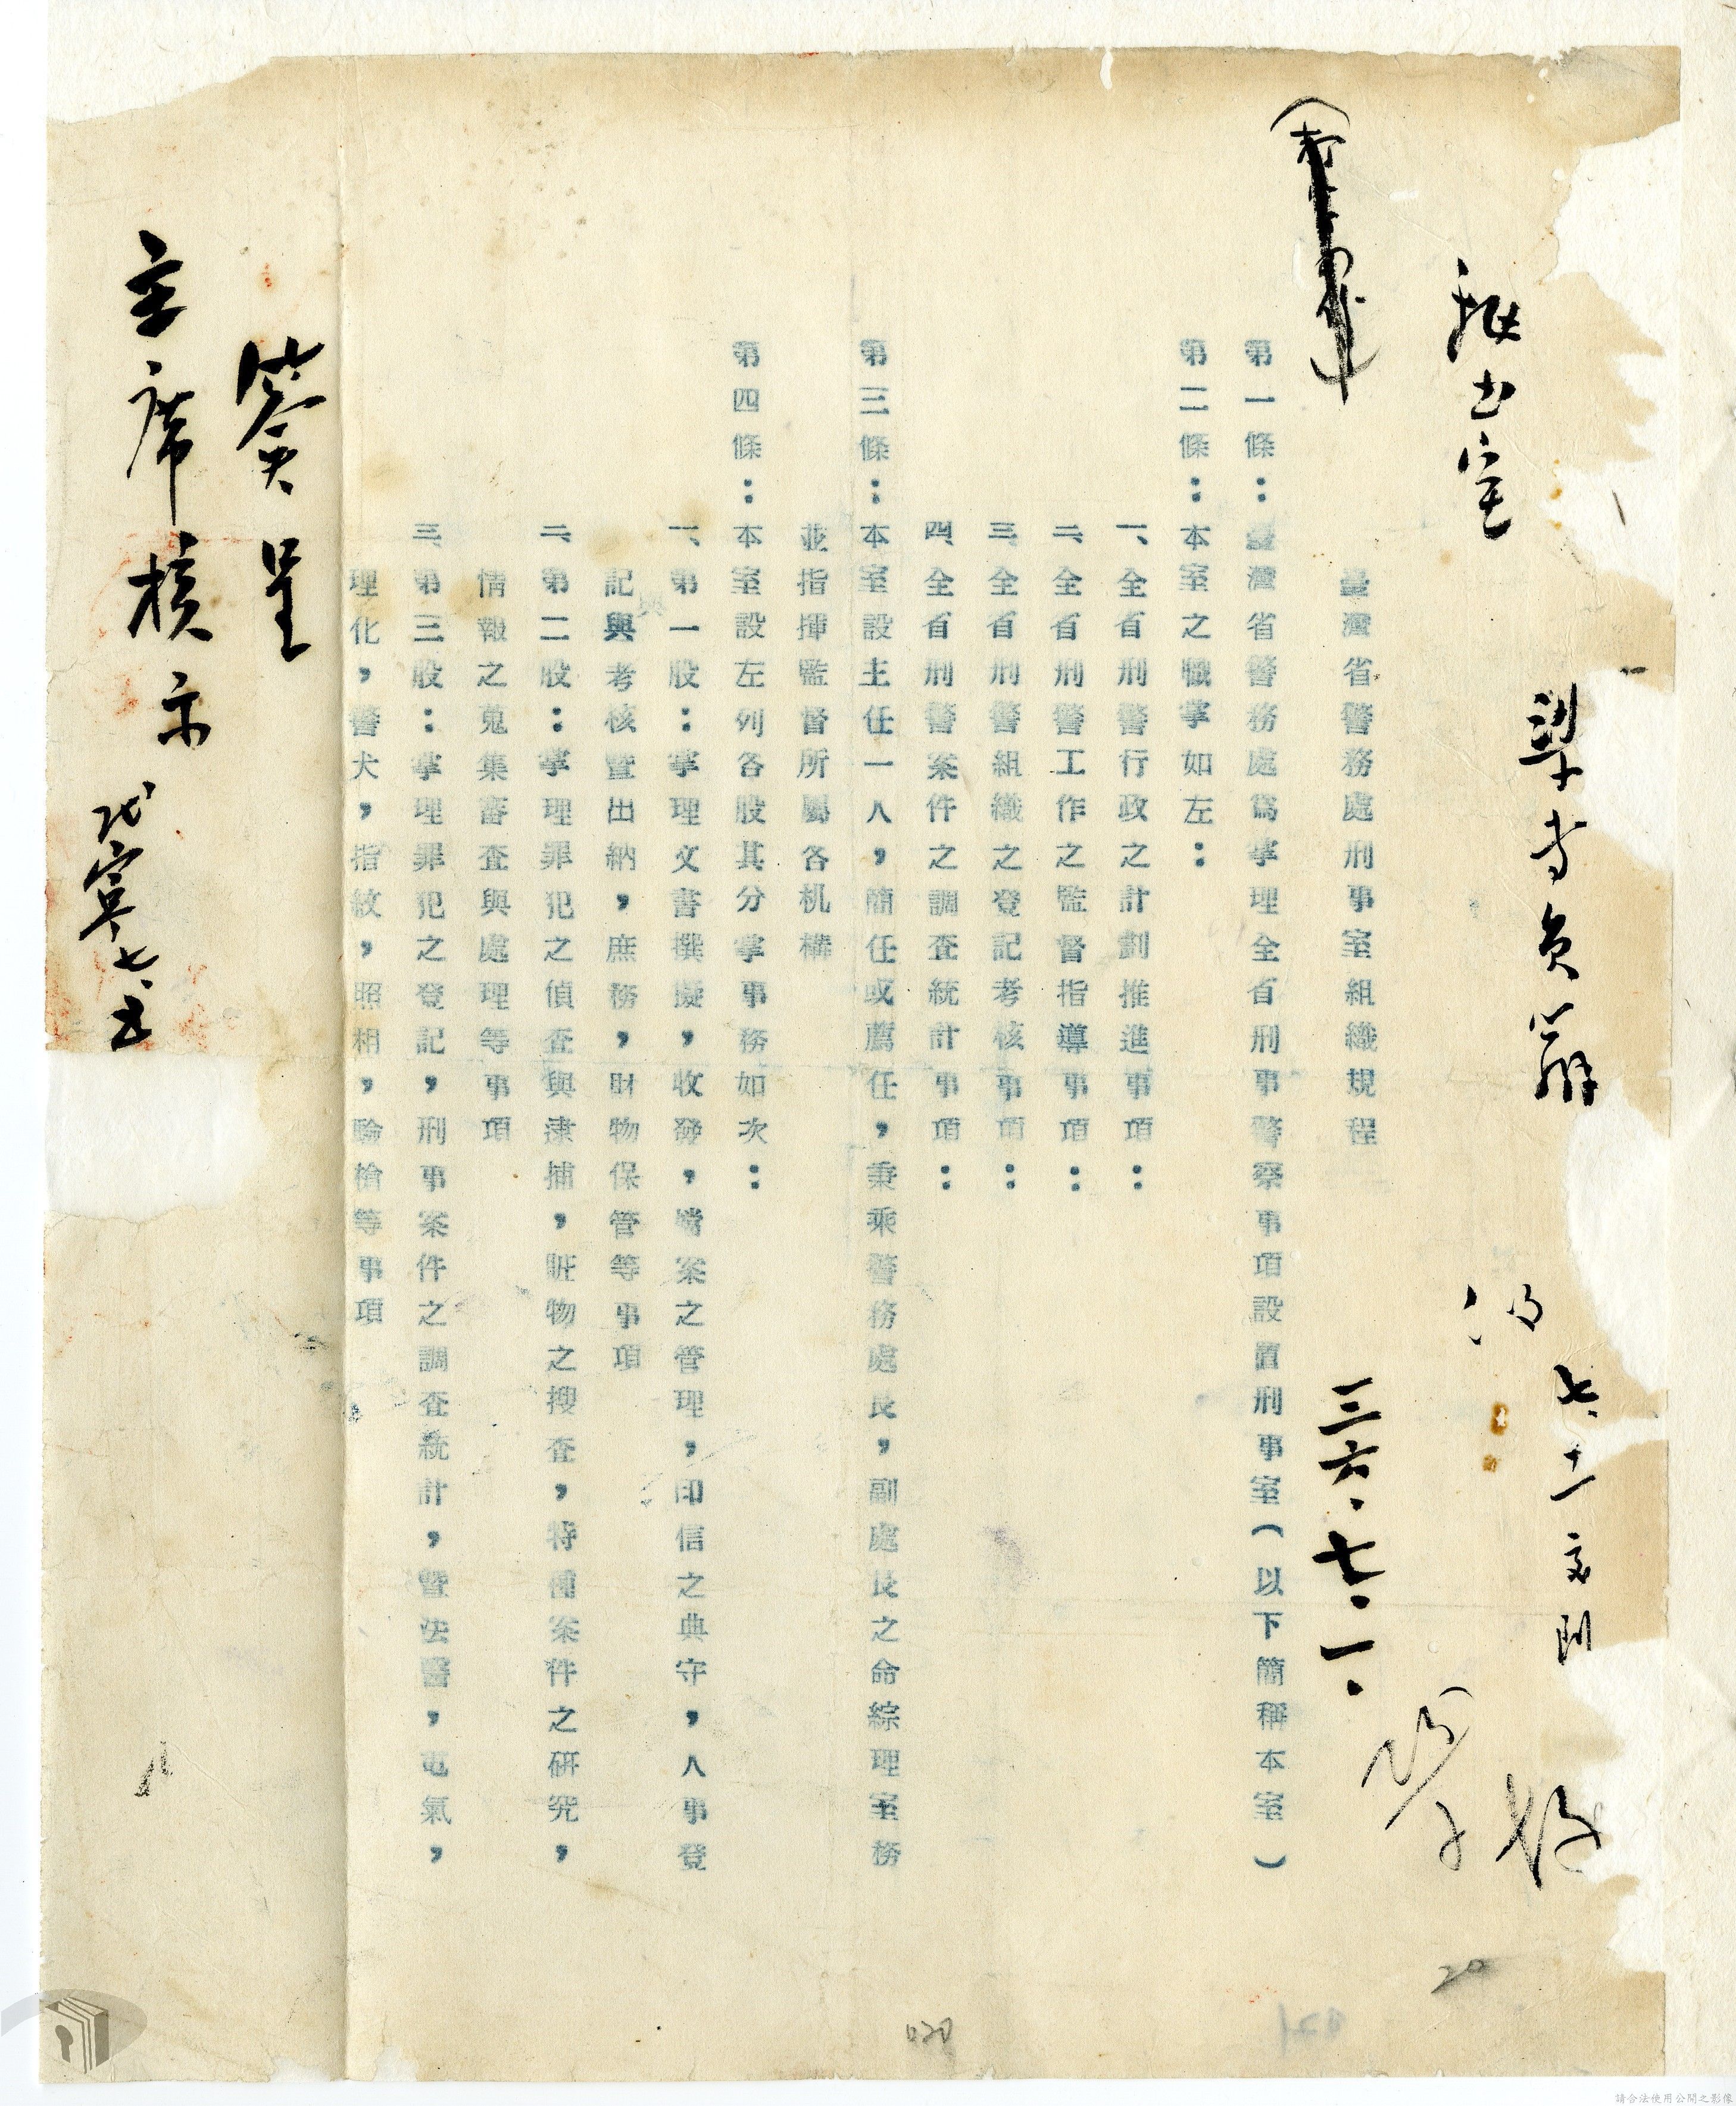 秘書室
梁專員辦
七、十一
三六．七．一．
臺灣省警務處刑事室組織規程
第一條：臺灣省警務處爲掌理全省刑事警察事項設置刑事室（以下簡稱本室）
第二條：本室之職掌如左：
一、全省刑警行政之計劃推進事項：
二、全省刑警工作之監督指導事項：
三、全省刑警組織之登記考核事項：
四、全省刑警案件之調查統計事項：
第三條：本室設主任一人，簡任或薦任，秉乘警務處長，副處長之命綜理室務
並指揮監督所屬各机構
第四條：本室設左列各股其分掌事務如次：
一、第一股：掌理文書撰擬，收發，檔案之管理，印信之典守，人事登
記與考核暨出納，庶務，財物保管等事項
二、第二股：掌理罪犯之偵查與逮捕，賍物之搜查，特種案件之研究，
情報之蒐集審查與處理等事項
三、第三股：掌理罪犯之登記，刑事案件之調查統計，暨法醫，电氣，
理化，警犬，指紋，照相，驗槍等事項
簽呈
主席核示
七、五
20
020
請合法使用公開之影像